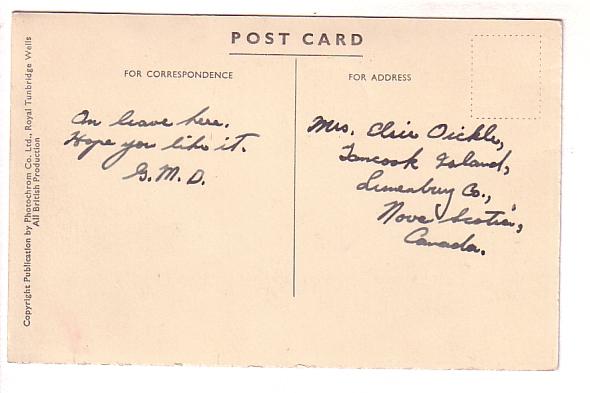 POST CARD
FOR CORRESPONDENCE
FOR ADDRESS
On leave here.
Hope you like it.
G.M.D.
Mrs. Elsie Oickle,
Tancook Island,
Lunenburg Co.,
Nova Scotia,
Canada.
Copyright Publication by Photochrom Co. Ltd., Royal Tunbridge Wells
All British Production